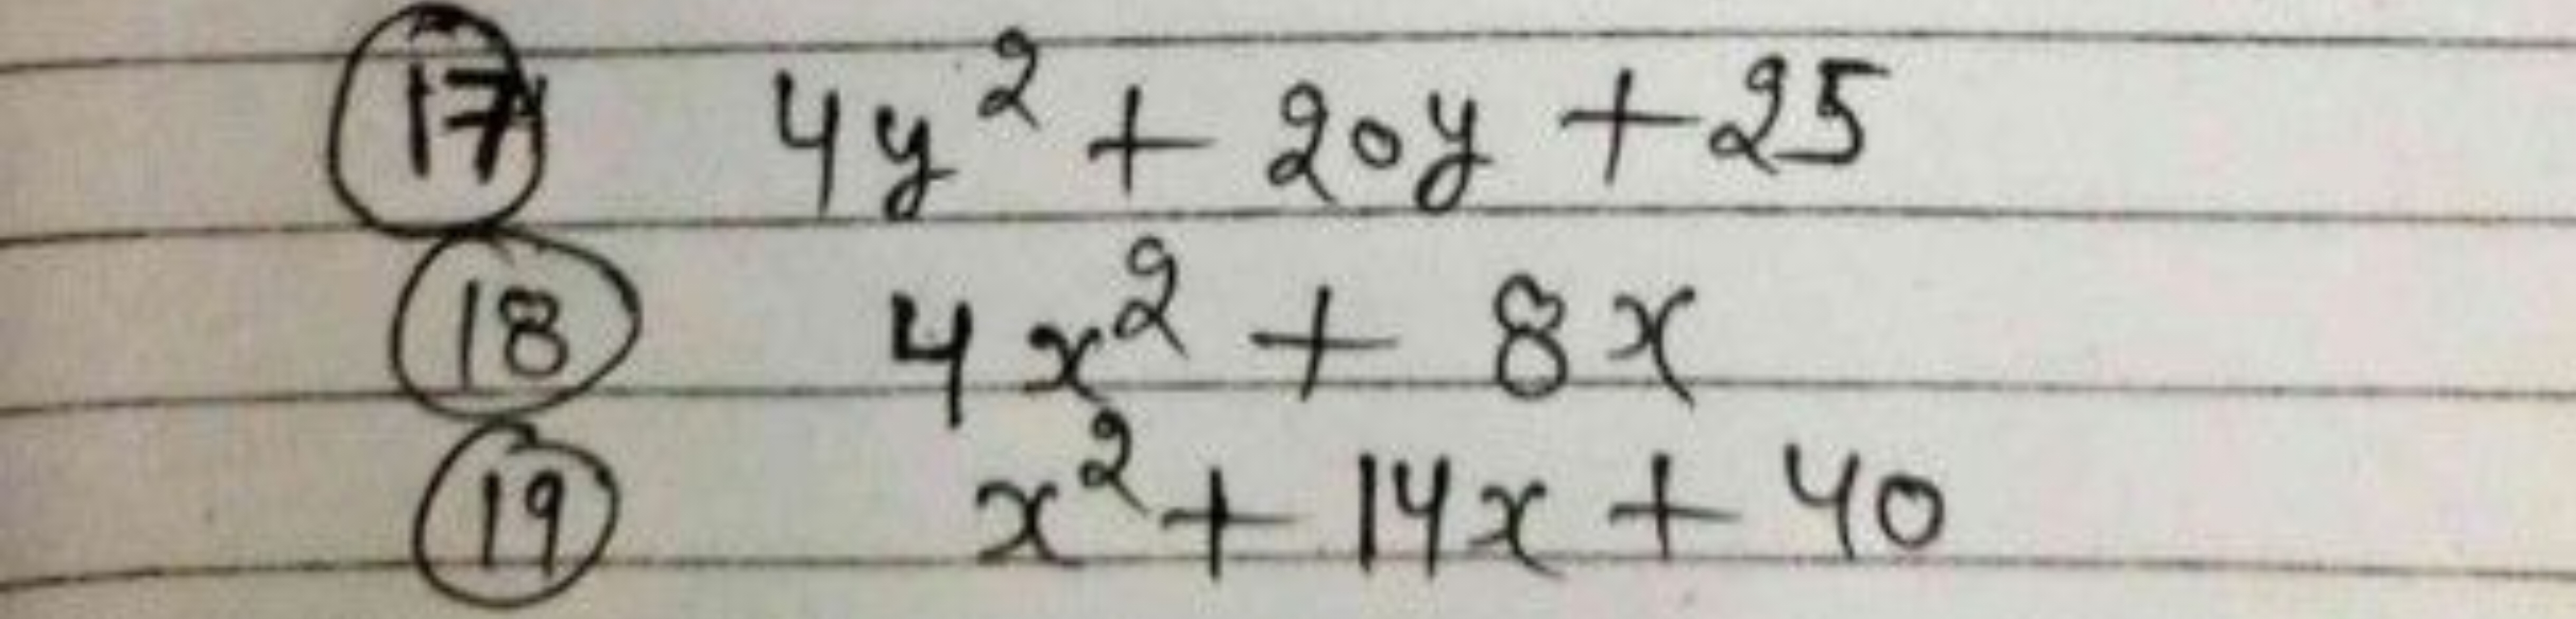 17 4y² + 20y + 25
18 4x² + 8x
19 x² + 14x + 40